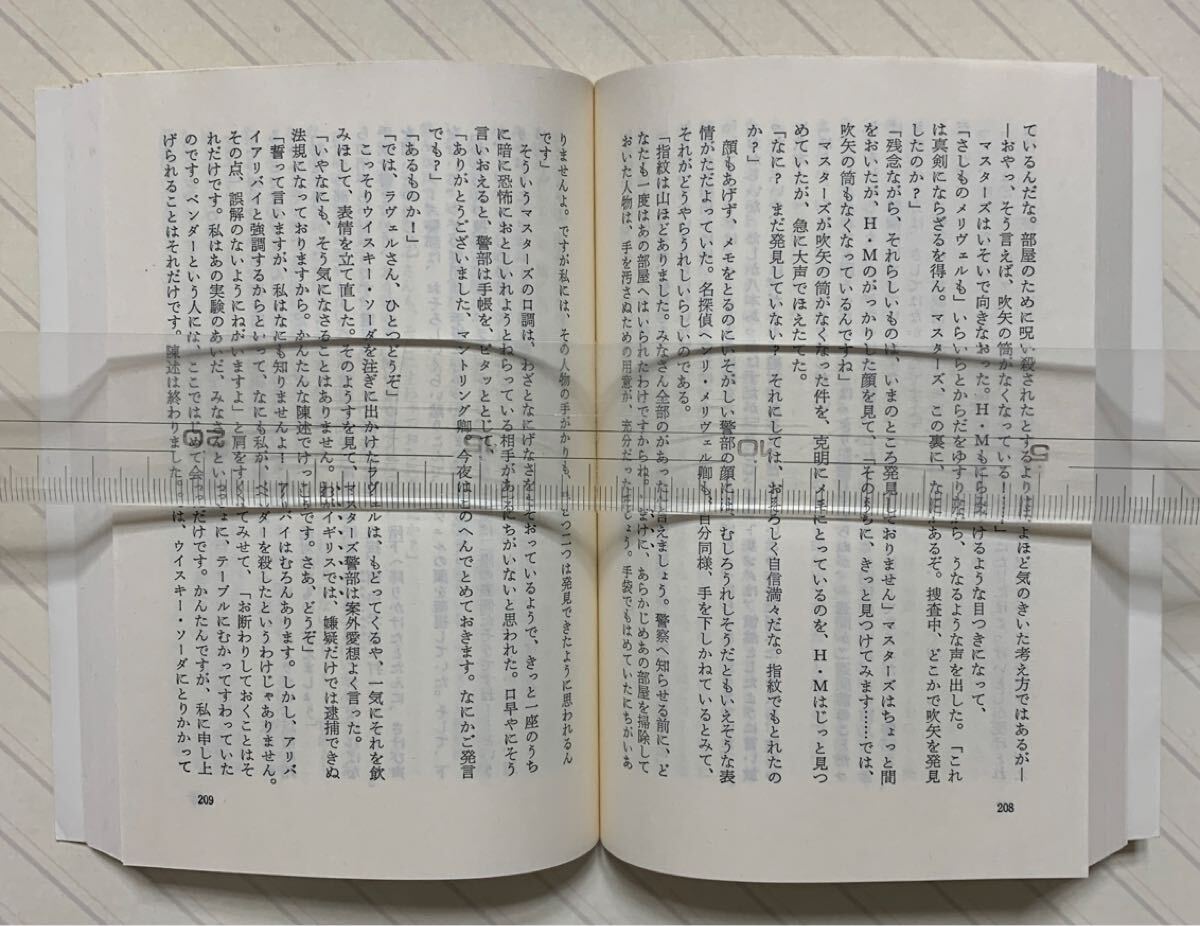 ているんだな。部屋のために呪い殺されたとするよりはよほど気のきいた考え方ではあるが―
―おやっ、そう言えば、吹矢の筒がなくなっている！……」
マスターズはいそいで向きなおった。H・Mもにらみつけるような目つきになって、
「さしものメリヴェルも」いらいらとからだをゆすりながら、うなるような声を出した。「これ
は真剣にならざるを得ん。マスターズ、この裏に、なにかあるぞ。捜査中、どこかで吹矢を発見
したのか？」
「残念ながら、それらしいものは、いまのところ発見しておりません」マスターズはちょっと間
をおいたが、H・Mのがっかりした顔を見て、「そのうちに、きっと見つけてみます……では、
吹矢の筒もなくなっているんですね」
マスターズが吹矢の筒がなくなった件を、克明にメモにとっているのを、H・Mはじっと見つ
めていたが、急に大声でほえたてた。
「なに？　まだ発見していない？　それにしては、おそろしく自信満々だな。指紋でもとれたの
か？」
顔もあげず、メモをとるのにいそがしい警部の顔には、むしろうれしそうだともいえそうな表
情がただよっていた。名探偵ヘンリ・メリヴェル卿も、自分同様、手を下しかねているとみて、
それがどうやらうれしいらしいのである。
「指紋は山ほどありました。みなさん全部のがあったと言えましょう。警察へ知らせる前に、ど
なたも一度はあの部屋へはいられたわけですからね。おまけに、あらかじめあの部屋を掃除して
おいた人物は、手を汚さぬための用意が、充分だったでしょう。手袋でもはめていたにちがいあ
208
りませんよ。ですが私には、その人物の手がかりも、ひとつ二つは発見できたように思われるん
です」
そういうマスターズの口調は、わざとなにげなさをよそおっているようで、きっと一座のうち
に暗に恐怖におとしいれようとねらっている相手があるにちがいないと思われた。口早やにそう
言いおえると、警部は手帳を、ピタッととじて、
「ありがとうございました、マントリング卿。今夜はこのへんでとめておきます。なにかご発言
でも？」
「あるものか！」
「では、ラヴェルさん、ひとつどうぞ」
こっそりウイスキー・ソーダを注ぎに出かけたラヴェルは、もどってくるや、一気にそれを飲
みほして、表情を立て直した。そのようすを見て、マスターズ警部は案外愛想よく言った。
「いやなにも、そう気になさることはありません。わがイギリスでは、嫌疑だけでは逮捕できぬ
法規になっておりますから。かんたんな陳述でけっこうです。さあ、どうぞ」
「誓って言いますが、私はなにも知りませんよ！　アリバイはむろんあります。しかし、アリバ
イアリバイと強調するからといって、なにも私が、ベンダーを殺したというわけじゃありません。
その点、誤解のないようにねがいますよ」と肩をすくめてみせて、「お断わりしておくことはそ
れだけです。私はあの実験のあいだ、みなさんといっしょに、テーブルにむかってすわっていた
のです。ベンダーという人には、ここではじめて会っただけです。かんたんですが、私に申し上
げられることはそれだけです。陳述は終わりました。では、ウイスキー・ソーダにとりかかって
209
5
10
15
20